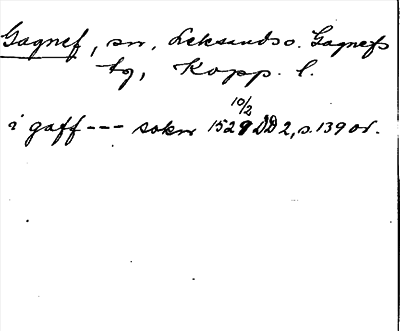 Gagnef, sn, Leksands o. Gagnefs
tg, Kopp. l.
10/2
i gaff--- sokn 1529 DD 2, s. 139 or.